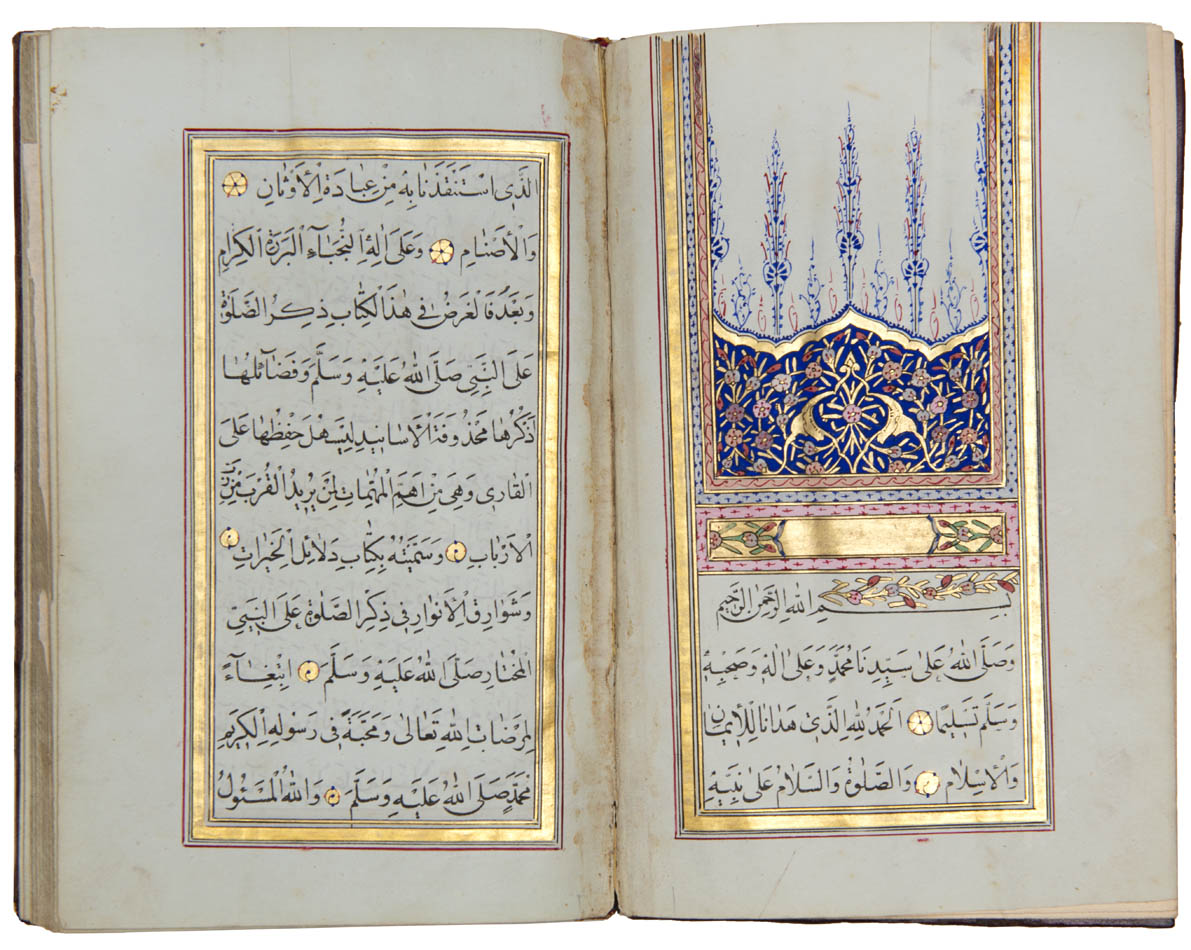 بسم الله الرحمن الرحيم
وَصَلَّى اللهُ عَلٰى سَيِّدِنَا مُحَمَّدٍ وَعَلٰى اٰلِهٖ وَصَحْبِهٖ
وَسَلَّمَ تَسْلِيمًا اَلْحَمْدُ لِلّٰهِ الَّذٖى هَدَانَا لِلْاٖيمَانِ
وَالْاِسْلَامِ وَالصَّلٰوةُ وَالسَّلَامُ عَلٰى نَبِيِّهِ
الَّذٖى اسْتَنْقَذَنَا بِهٖ مِنْ عِبَادَةِ الْاَوْثَانِ
وَالْاَصْنَامِ وَعَلٰى اٰلِهِ النُّجَبَاءِ الْبَرَرَةِ الْكِرَامِ
وَبَعْدُ فَالْغَرَضُ فٖى هٰذَا الْكِتَابِ ذِكْرُ الصَّلٰوةِ
عَلَى النَّبِىِّ صَلَّى اللهُ عَلَيْهِ وَسَلَّمَ وَفَضَائِلُهَا
اَذْكُرُهَا مَحْذُوفَةَ الْاَسَانٖيدِ لِيَسْهُلَ حِفْظُهَا عَلَى
الْقَارِى وَهِىَ مِنْ اَهَمِّ الْمُهِمَّاتِ لِمَنْ يُرٖيدُ الْقُرْبَ مِنْ رَبِّ
الْاَرْبَابِ وَسَمَّيْتُهُ بِكِتَابِ دَلَائِلِ الْخَيْرَاتِ
وَشَوَارِقِ الْاَنْوَارِ فٖى ذِكْرِ الصَّلٰوةِ عَلَى النَّبِىِّ
الْمُخْتَارِ صَلَّى اللهُ عَلَيْهِ وَسَلَّمَ ابْتِغَاءً
لِمَرْضَاتِ اللهِ تَعَالٰى وَمَحَبَّةً فٖى رَسُولِهِ الْكَرٖيمِ
مُحَمَّدٍ صَلَّى اللهُ عَلَيْهِ وَسَلَّمَ وَاللهُ الْمَسْئُولُ